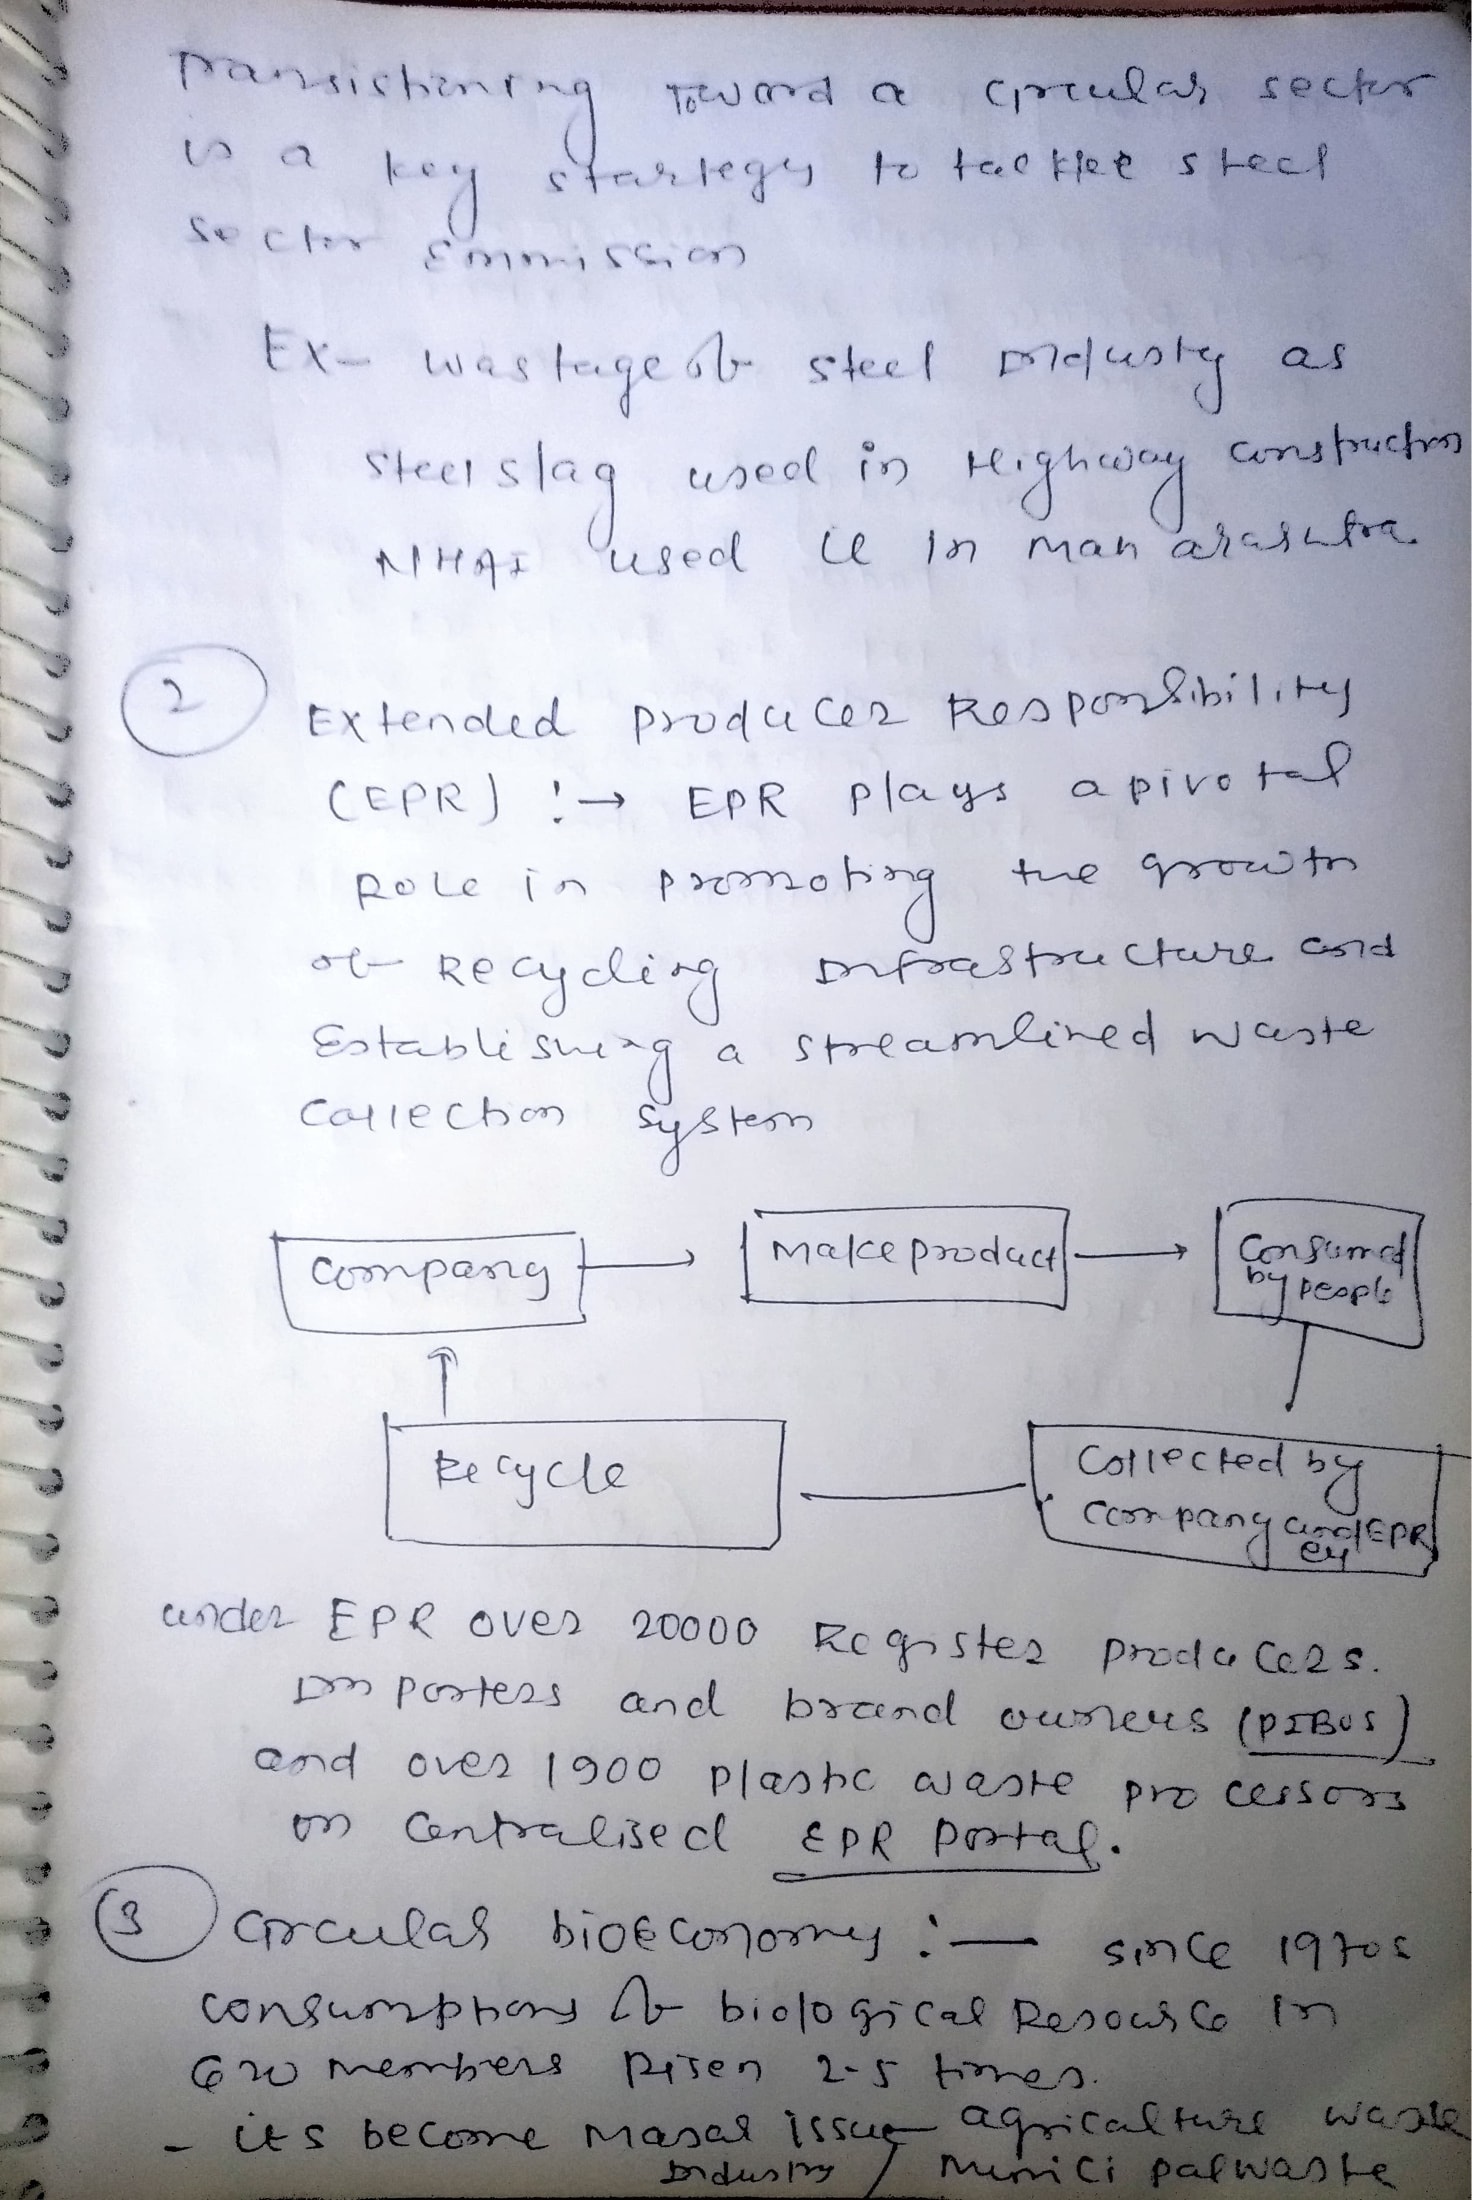 Transistioning Toward a circular sector
is a key startegy to tackle steel
sector Emmission
Ex- wastage of steel Industry as
steel slag used in Highway construction
NHAI used it in Maharashtra
2
Extended producer Responsibility
(EPR) :→ EPR plays a pivotal
Role in promoting the growth
of Recycling Infrastructure and
Establishing a streamlined waste
collection system
company → Make product → Consumed
by people
Recycle
Collected by
company and EPR
under EPR over 20000 Register producers.
Importers and brand owners (PIBOS)
and over 1900 plastic waste processors
on Centralised EPR Portal.
3 Circular bioeconomy :— since 1970s
consumptions of biological Resource in
G20 members Risen 2.5 times.
- its become Masal issue agriculture waste
Industry / Munici palwaste